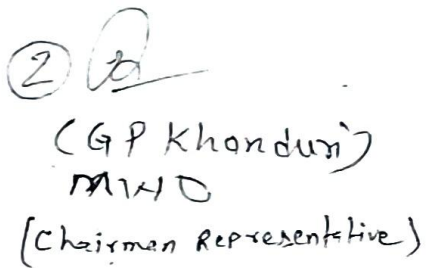 ②
(GP Khanduri)
MWHO
(Chairman Representative)